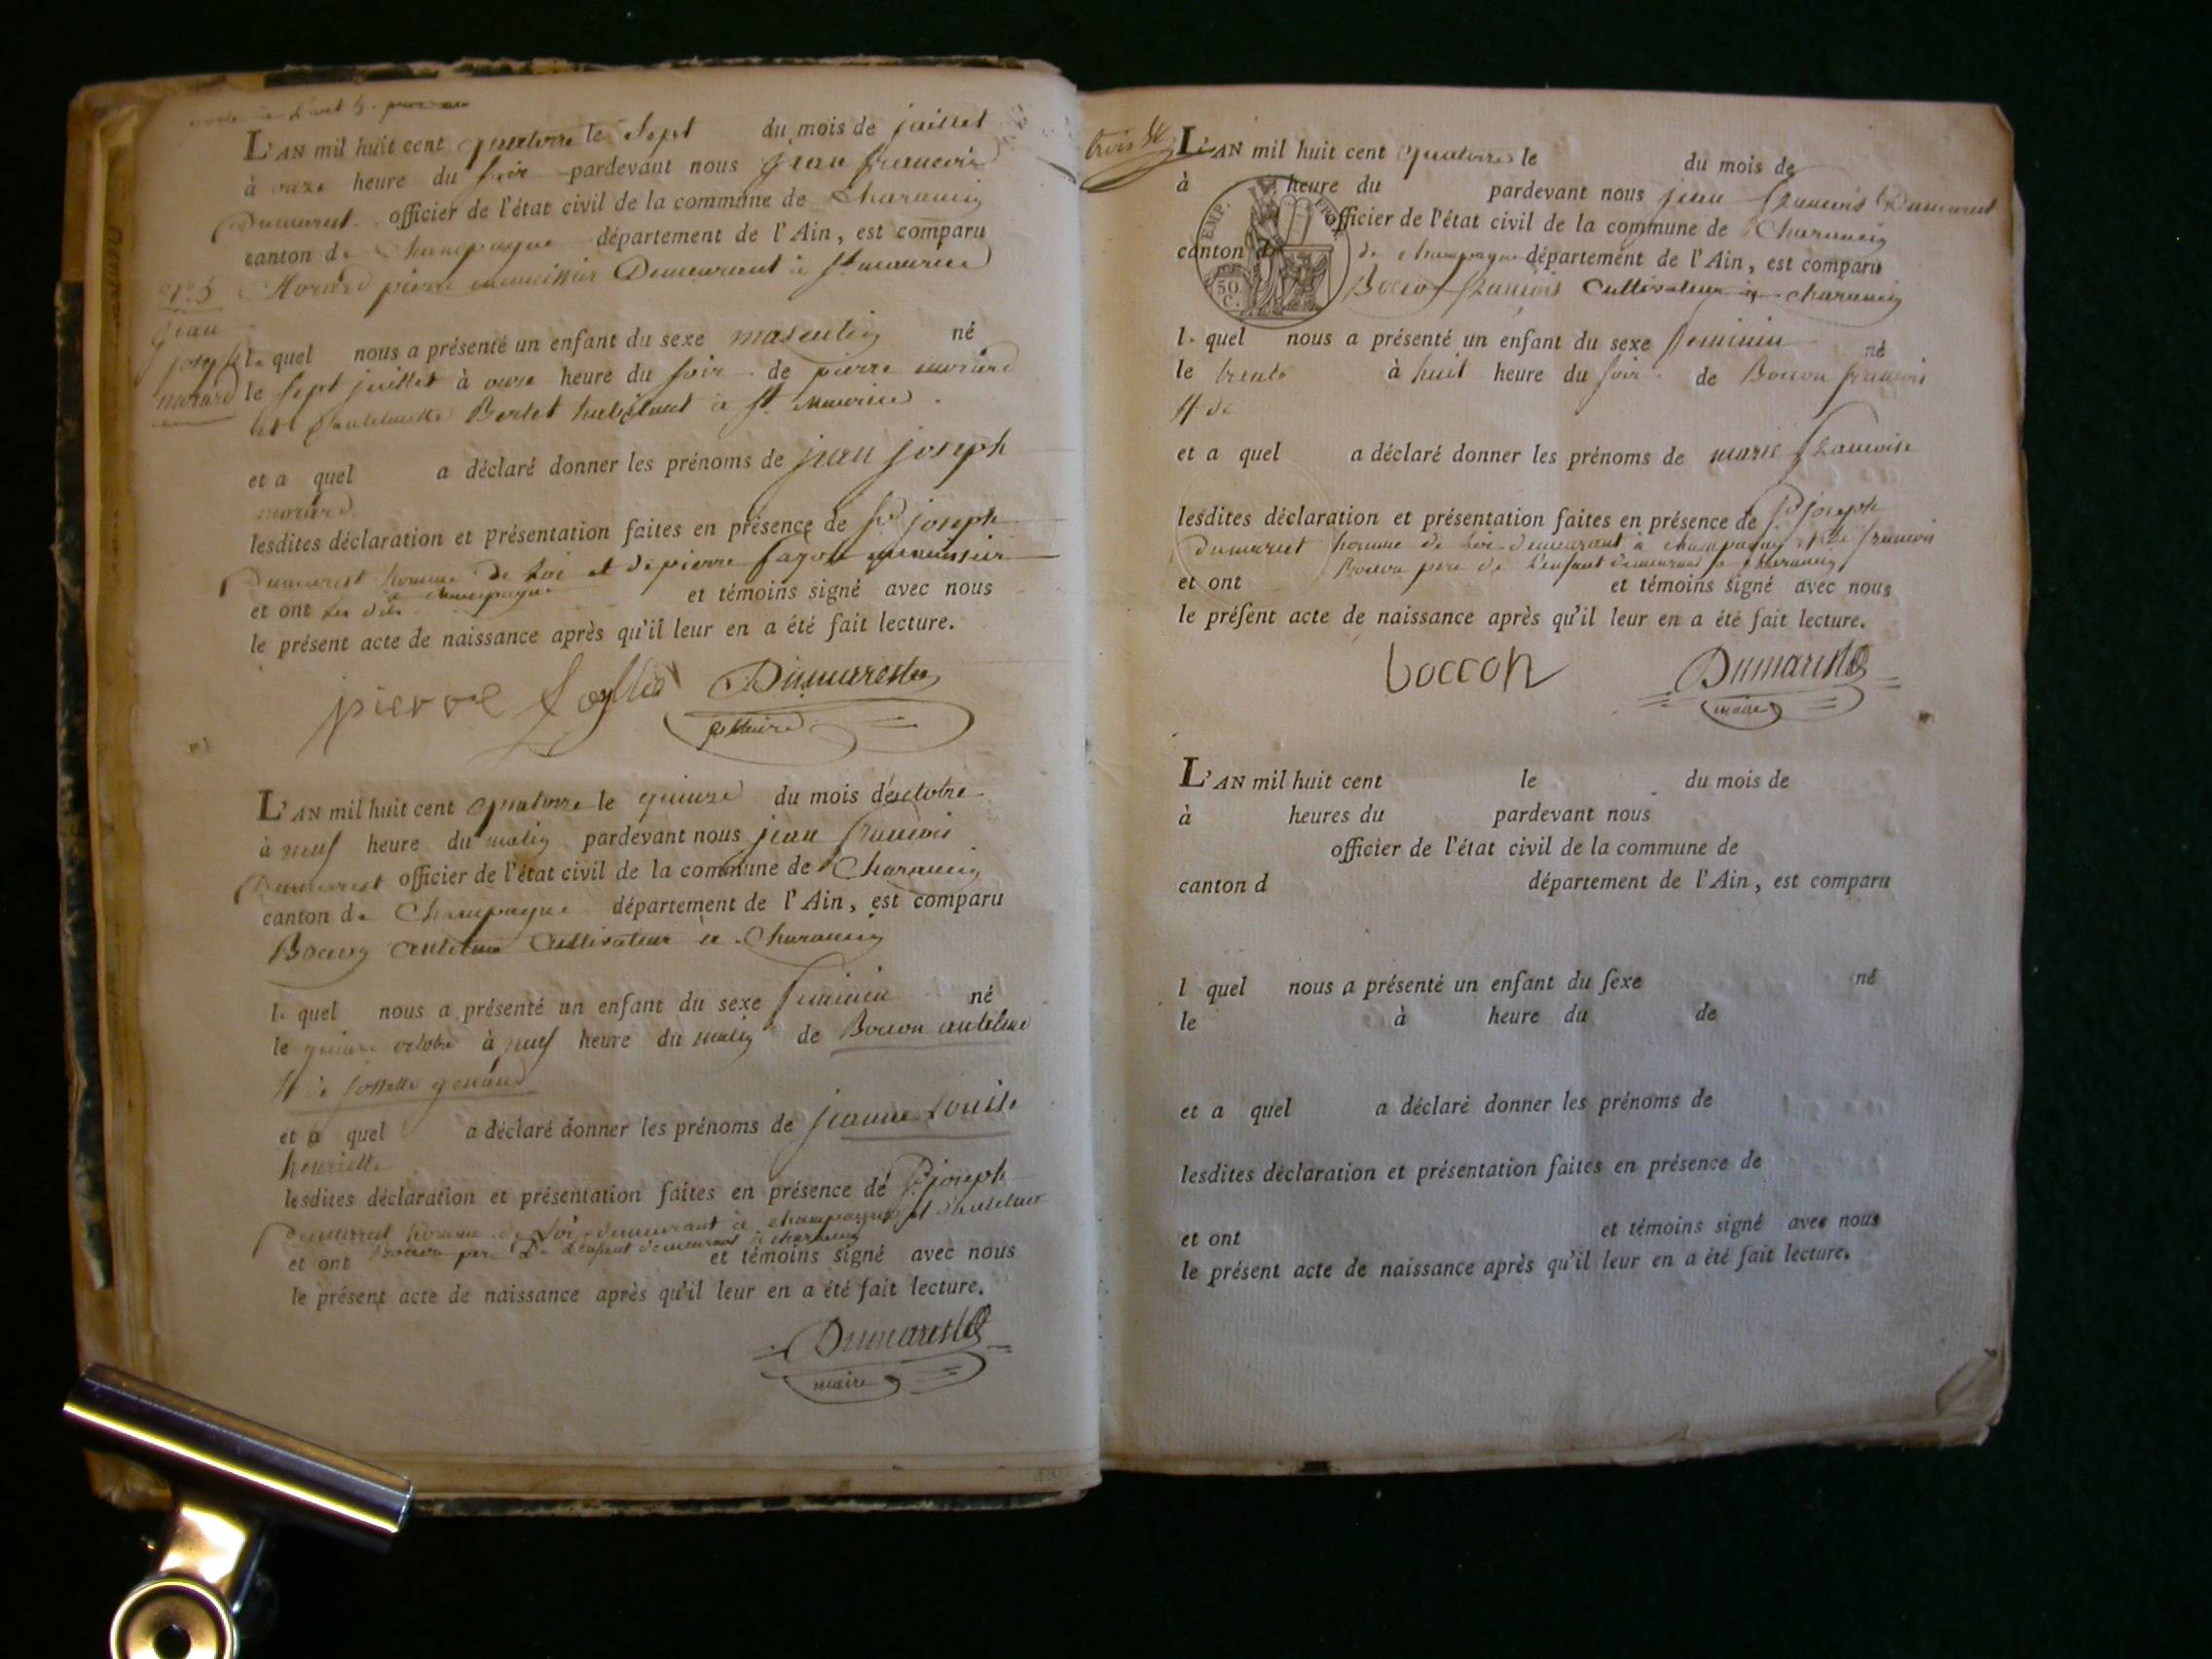 L'AN mil huit cent quatorze le Sept du mois de juillet
à onze heure du soir pardevant nous jean francois
Dumarest officier de l'état civil de la commune de Charancin
canton de Champagne département de l'Ain, est comparu
Morard pierre menuisier Demeurant à St maurice
n° 5
jean
joseph
morard
le quel nous a présenté un enfant du sexe masculin né
le sept juillet à onze heure du soir de pierre morard
et d'antelmette Bertet habitant à St maurice.
et a quel a déclaré donner les prénoms de jean joseph
morard
lesdites déclaration et présentation faites en présence de Sr joseph
Dumarest homme de Loi et de pierre menuisier
à champagne
et ont Les dits et témoins signé avec nous
le présent acte de naissance après qu'il leur en a été fait lecture.
pierre Dumarest
maire
L'AN mil huit cent quatorze le quinze du mois d'octobre
à neuf heure du matin pardevant nous jean francois
Dumarest officier de l'état civil de la commune de Charancin
canton de Champagne département de l'Ain, est comparu
Bocon antelme Cultivateur à Charancin
le quel nous a présenté un enfant du sexe feminin né
le quinze octobre à neuf heure du matin de Bocon antelme
et de josette
et a quel a déclaré donner les prénoms de jeanne Louise
henriette
lesdites déclaration et présentation faites en présence de Sr joseph
Dumarest homme de Loi demeurant à champagne et d'antelme
Bocon pere De L'enfant demeurant à charancin
et ont et témoins signé avec nous
le présent acte de naissance après qu'il leur en a été fait lecture.
Dumarest
maire
trois
L'AN mil huit cent quatorze le du mois de
à heure du pardevant nous jean francois Dumarest
officier de l'état civil de la commune de Charancin
canton d de champagne département de l'Ain, est comparu
EMP. FROY.
50
C.
Bocon francois Cultivateur à charancin
le quel nous a présenté un enfant du sexe feminin né
le trente à huit heure du soir de Bocon francois
et de
et a quel a déclaré donner les prénoms de marie francoise
lesdites déclaration et présentation faites en présence de Sr joseph
dumarest homme de Loi demeurant à champagne et de francois
Bocon pere de L'enfant demeurant à charancin
et ont et témoins signé avec nous
le préſent acte de naissance après qu'il leur en a été fait lecture.
boccon Dumarest
maire
L'AN mil huit cent le du mois de
à heures du pardevant nous
officier de l'état civil de la commune de
canton d département de l'Ain, est comparu
l quel nous a présenté un enfant du ſexe né
le à heure du de
et a quel a déclaré donner les prénoms de
lesdites déclaration et présentation faites en présence de
et ont et témoins signé avec nous
le présent acte de naissance après qu'il leur en a été fait lecture.